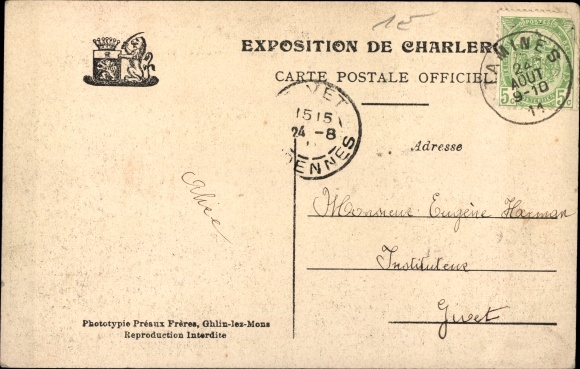 15
EXPOSITION DE CHARLER
CARTE POSTALE OFFICIEL
TAMINES
24
AOUT
9-10
11
5 5
VET
1515
24 -8
DENNES
Adresse
Alice
Monsieur Eugène Harman
Instituteur
Givet
Phototypie Préaux Frères, Ghlin-lez-Mons
Reproduction Interdite